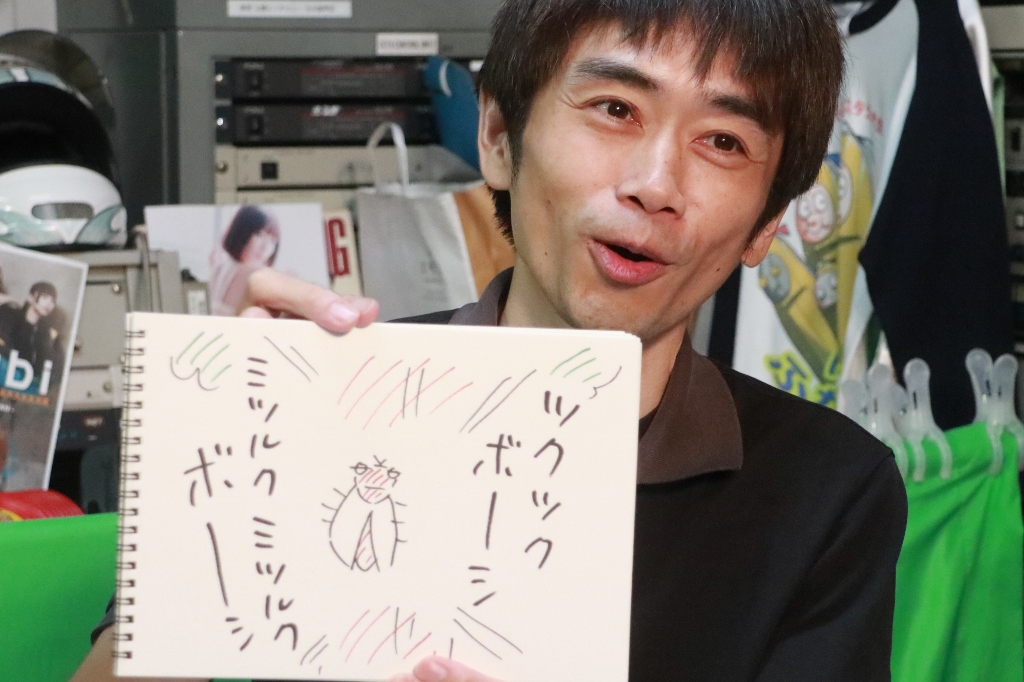 ツクツク
ボーシ
ミツルク ミツルク
ボーーシ
bi
G